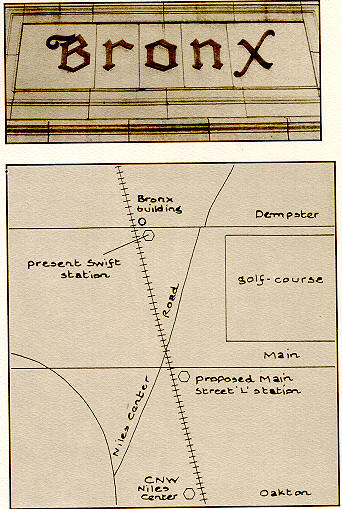 Bronx
Bronx
building
Dempster
present Swift
station
golf-course
Road
Main
proposed Main
Street 'L' station
Niles Center
CNW
Niles
Center
Oakton